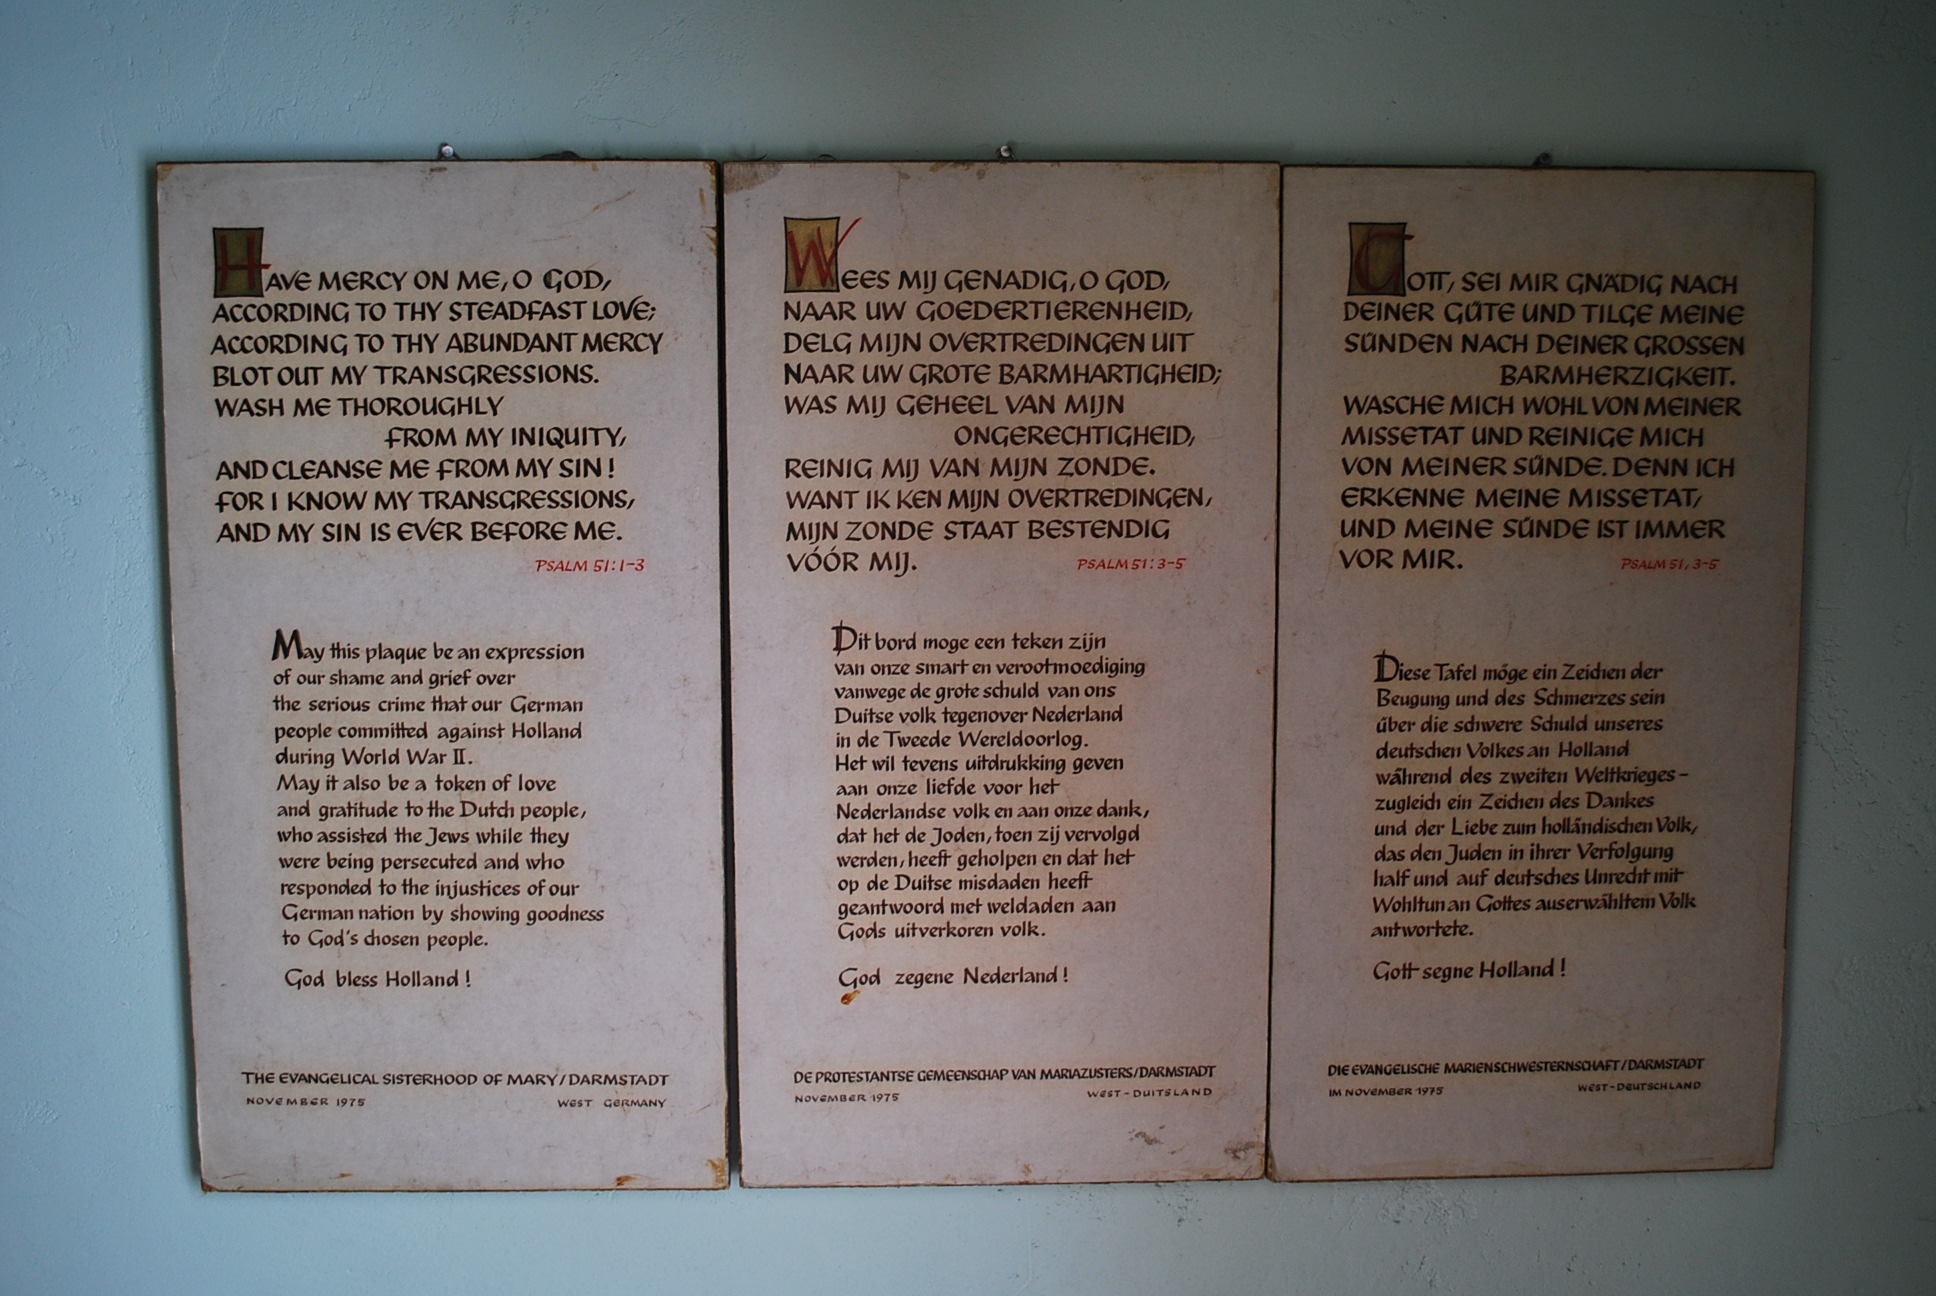 HAVE MERCY ON ME, O GOD,
ACCORDING TO THY STEADFAST LOVE;
ACCORDING TO THY ABUNDANT MERCY
BLOT OUT MY TRANSGRESSIONS.
WASH ME THOROUGHLY
FROM MY INIQUITY,
AND CLEANSE ME FROM MY SIN!
FOR I KNOW MY TRANSGRESSIONS,
AND MY SIN IS EVER BEFORE ME.
PSALM 51:1-3
May this plaque be an expression
of our shame and grief over
the serious crime that our German
people committed against Holland
during World War II.
May it also be a token of love
and gratitude to the Dutch people,
who assisted the Jews while they
were being persecuted and who
responded to the injustices of our
German nation by showing goodness
to God's chosen people.
God bless Holland!
THE EVANGELICAL SISTERHOOD OF MARY/DARMSTADT
NOVEMBER 1975 WEST GERMANY
WEES MIJ GENADIG, O GOD,
NAAR UW GOEDERTIERENHEID,
DELG MIJN OVERTREDINGEN UIT
NAAR UW GROTE BARMHARTIGHEID;
WAS MIJ GEHEEL VAN MIJN
ONGERECHTIGHEID,
REINIG MIJ VAN MIJN ZONDE.
WANT IK KEN MIJN OVERTREDINGEN,
MIJN ZONDE STAAT BESTENDIG
VÓÓR MIJ. PSALM 51:3-5
Dit bord moge een teken zijn
van onze smart en verootmoediging
vanwege de grote schuld van ons
Duitse volk tegenover Nederland
in de Tweede Wereldoorlog.
Het wil tevens uitdrukking geven
aan onze liefde voor het
Nederlandse volk en aan onze dank,
dat het de Joden, toen zij vervolgd
werden, heeft geholpen en dat het
op de Duitse misdaden heeft
geantwoord met weldaden aan
Gods uitverkoren volk.
God zegene Nederland!
DE PROTESTANTSE GEMEENSCHAP VAN MARIAZUSTERS/DARMSTADT
NOVEMBER 1975 WEST-DUITSLAND
GOTT, SEI MIR GNÄDIG NACH
DEINER GÜTE UND TILGE MEINE
SÜNDEN NACH DEINER GROSSEN
BARMHERZIGKEIT.
WASCHE MICH WOHL VON MEINER
MISSETAT UND REINIGE MICH
VON MEINER SÜNDE. DENN ICH
ERKENNE MEINE MISSETAT,
UND MEINE SÜNDE IST IMMER
VOR MIR. PSALM 51, 3-5
Diese Tafel möge ein Zeichen der
Beugung und des Schmerzes sein
über die schwere Schuld unseres
deutschen Volkes an Holland
während des zweiten Weltkrieges-
zugleich ein Zeichen des Dankes
und der Liebe zum holländischen Volk,
das den Juden in ihrer Verfolgung
half und auf deutsches Unrecht mit
Wohltun an Gottes auserwähltem Volk
antwortete.
Gott segne Holland!
DIE EVANGELISCHE MARIENSCHWESTERNSCHAFT/DARMSTADT
IM NOVEMBER 1975 WEST-DEUTSCHLAND